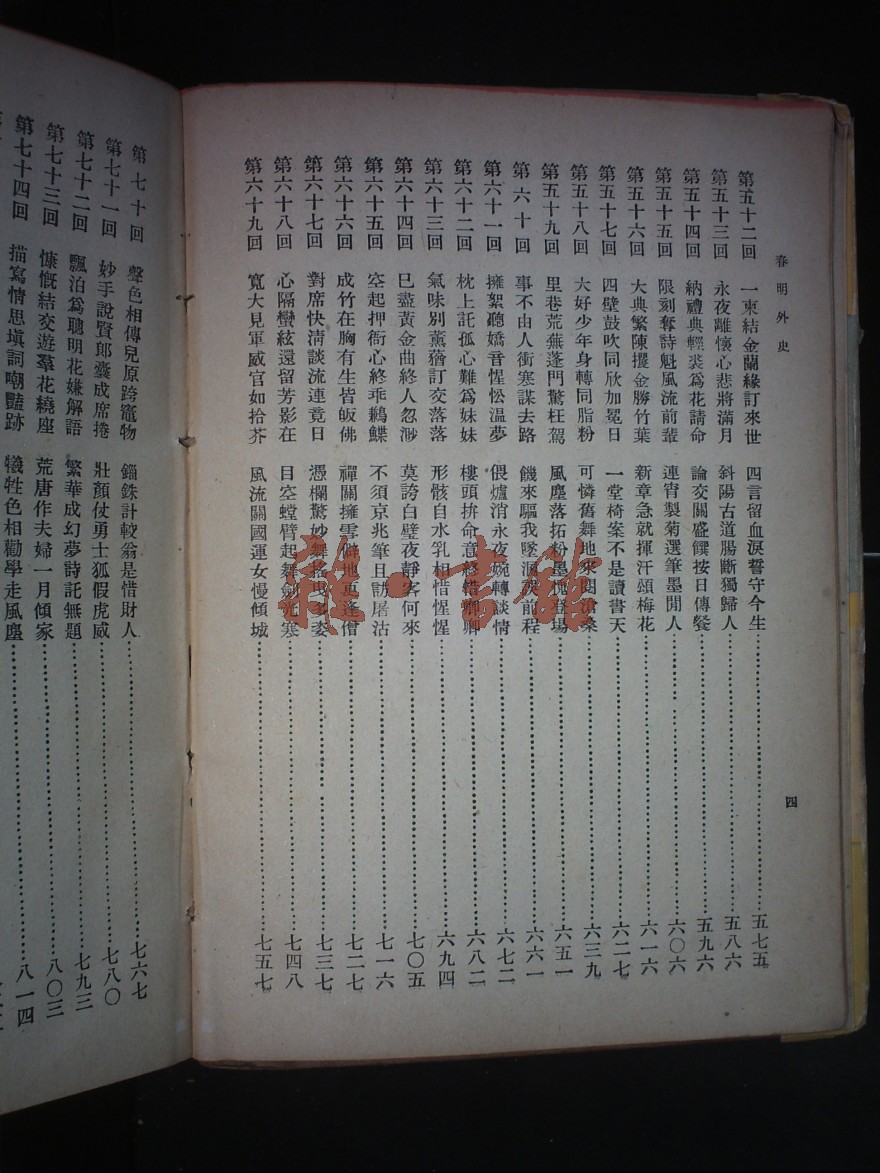 春明外史
第五十二回 一束結金蘭緣訂來世 四言留血淚誓守今生 五七五
第五十三回 永夜離懷心悲將滿月 斜陽古道腸斷獨歸人 五八六
第五十四回 納禮典輕裘爲花請命 論交關盛饌按日傳餐 五九六
第五十五回 限刻奪詩魁風流前輩 連宵製菊選筆墨閒人 六〇六
第五十六回 大典繁陳攫金勝竹葉 新章急就揮汗頌梅花 六一六
第五十七回 四壁鼓吹同欣加冕日 一堂椅案不是讀書天 六二七
第五十八回 大好少年身轉同脂粉 可憐舊舞地來閱滄桑 六三九
第五十九回 里巷荒蕪蓬門驚枉駕 風塵落拓粉墨愧登場 六五一
第六十回 事不由人衝寒謀去路 饑來驅我墜溷誤前程 六六一
第六十一回 擁絮聽嬌音惺忪温夢 偎爐消永夜婉轉談情 六七二
第六十二回 枕上託孤心難爲妹妹 樓頭拚命意終惜卿卿 六八二
第六十三回 氣味別薰蕕訂交落落 形骸自水乳相惜惺惺 六九四
第六十四回 已盡黃金曲終人忽渺 莫誇白壁夜靜客何來 七〇五
第六十五回 空起押衙心終乖鶼鰈 不須京兆筆且訪屠沽 七一六
第六十六回 成竹在胸有生皆皈佛 禪關擁雪僻地更逢僧 七二七
第六十七回 對席快清談流連竟日 憑欄驚妙舞搖曳多姿 七三七
第六十八回 心隔蠻絃還留芳影在 目空螳臂起舞劍光寒 七四八
第六十九回 寬大見軍威官如拾芥 風流關國運女慢傾城 七五七
四
第七十回 聲色相傳兒原跨竈物 錙銖計較翁是惜財人 七六七
第七十一回 妙手說賢郎囊成席捲 壯顏仗勇士狐假虎威 七八〇
第七十二回 飄泊爲聰明花嫌解語 繁華成幻夢詩託無題 七九三
第七十三回 慷慨結交遊羣花繞座 荒唐作夫婦一月傾家 八〇三
第七十四回 描寫情思填詞嘲豔跡 犧牲色相勸學走風塵 八一四